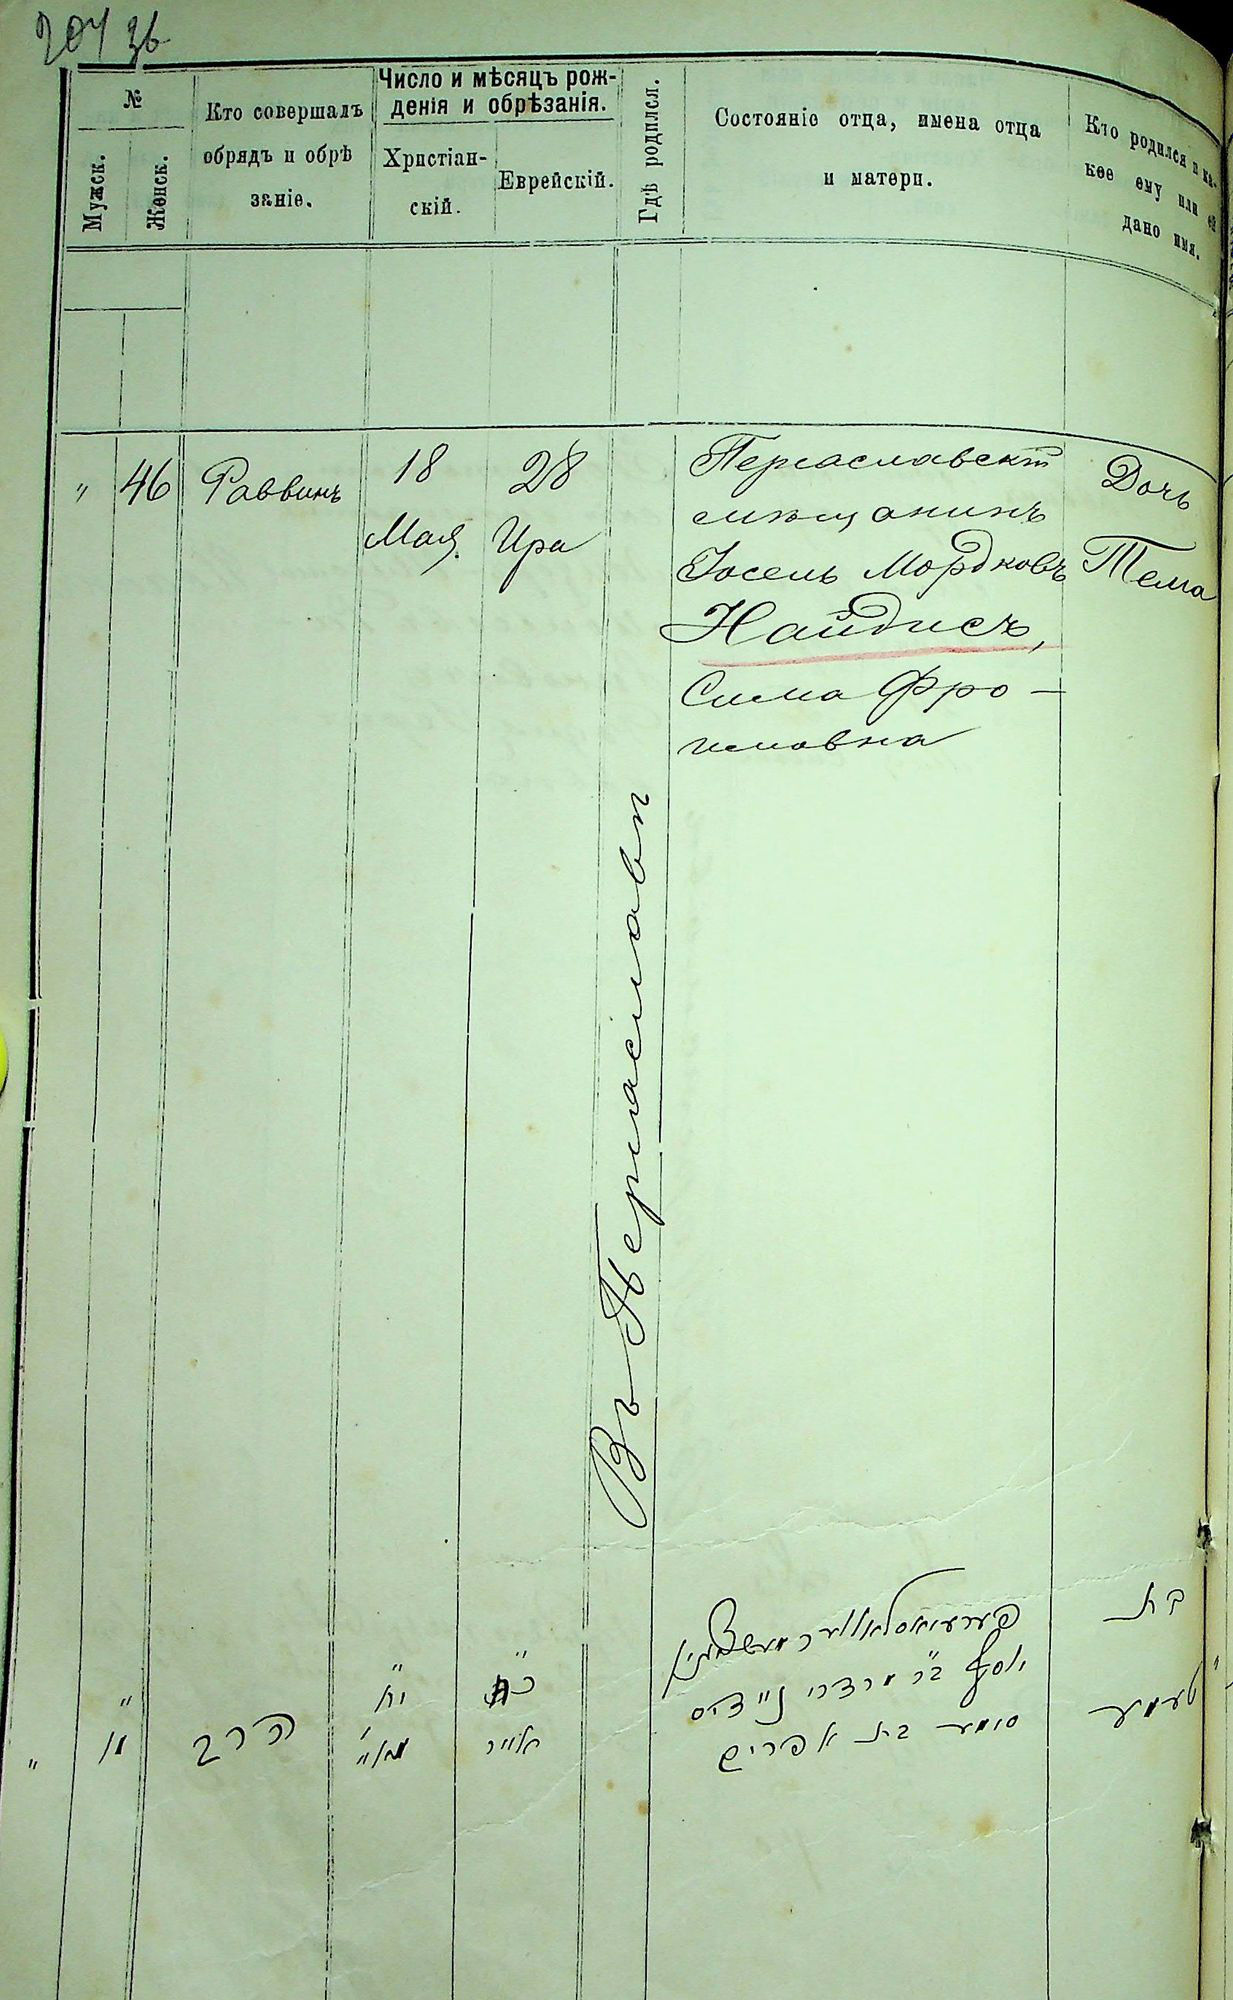 204 зв
№
Мужск.
Женск.
Кто совершалъ
обрядъ и обрѣ
заніе.
Число и мѣсяцъ рож-
денія и обрѣзанія.
Христіан-
скій.
Еврейскій.
Гдѣ родился.
Состояніе отца, имена отца
и матери.
Кто родился и ка-
кое ему или ей
дано имя.
" 46 Раввинъ
18
Мая.
28
Ира
Въ Переяславѣ
Переаславскій
мѣщанинъ
Іосель Мордковъ
Найдисъ,
Сима Фро-
имовна
Дочь
Тема
הרב
יח
מאיי
אייר
יוסף ב"ר מרדכי ניידיס
סימע בת אפרים
בת
טעמע